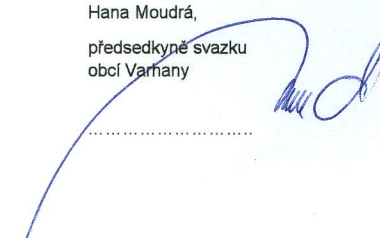 Hana Moudrá,
předsedkyně svazku
obcí Varhany
………………………..